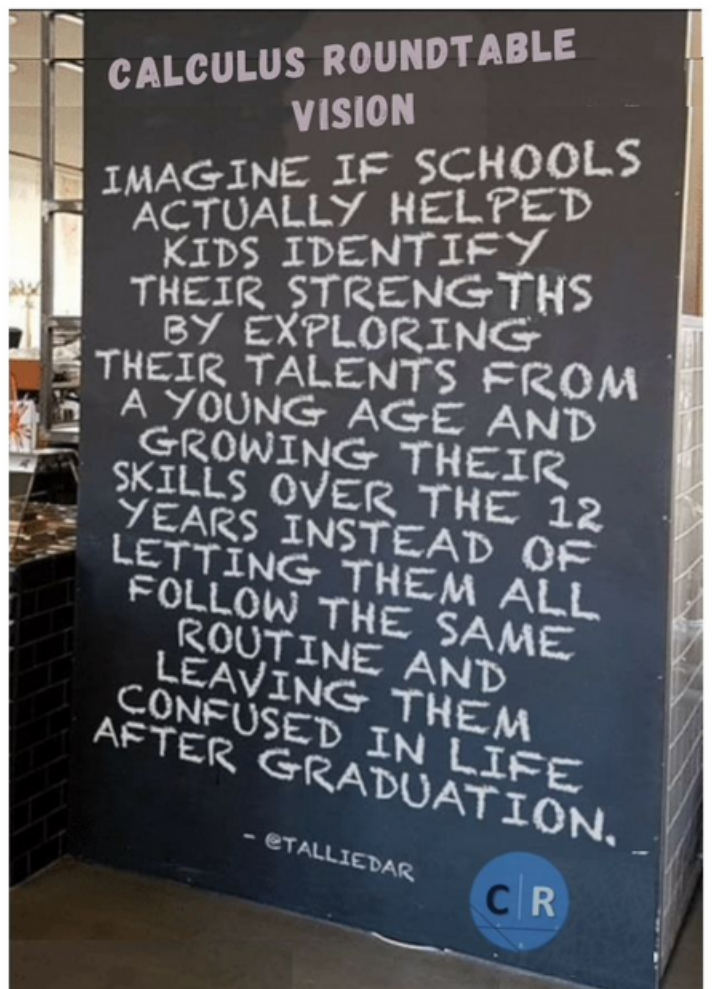 CALCULUS ROUNDTABLE
VISION
IMAGINE IF SCHOOLS
ACTUALLY HELPED
KIDS IDENTIFY
THEIR STRENGTHS
BY EXPLORING
THEIR TALENTS FROM
A YOUNG AGE AND
GROWING THEIR
SKILLS OVER THE 12
YEARS INSTEAD OF
LETTING THEM ALL
FOLLOW THE SAME
ROUTINE AND
LEAVING THEM
CONFUSED IN LIFE
AFTER GRADUATION.
- @TALLIEDAR
C|R